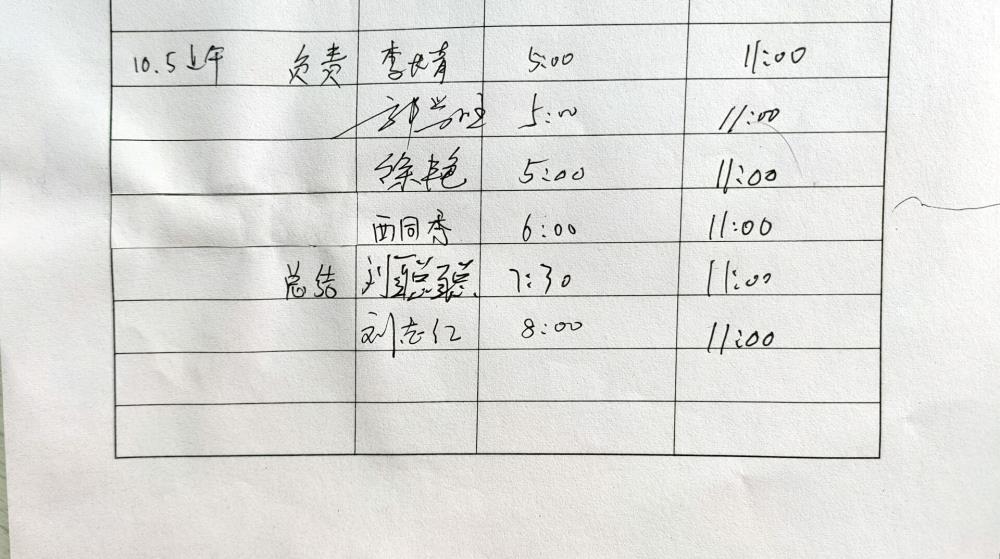 10.5上午 负责 李长青 5:00 11:00
5:00 11:00
徐艳 5:00 11:00
西同秀 6:00 11:00
总结 刘聪聪 7:30 11:00
刘志仁 8:00 11:00